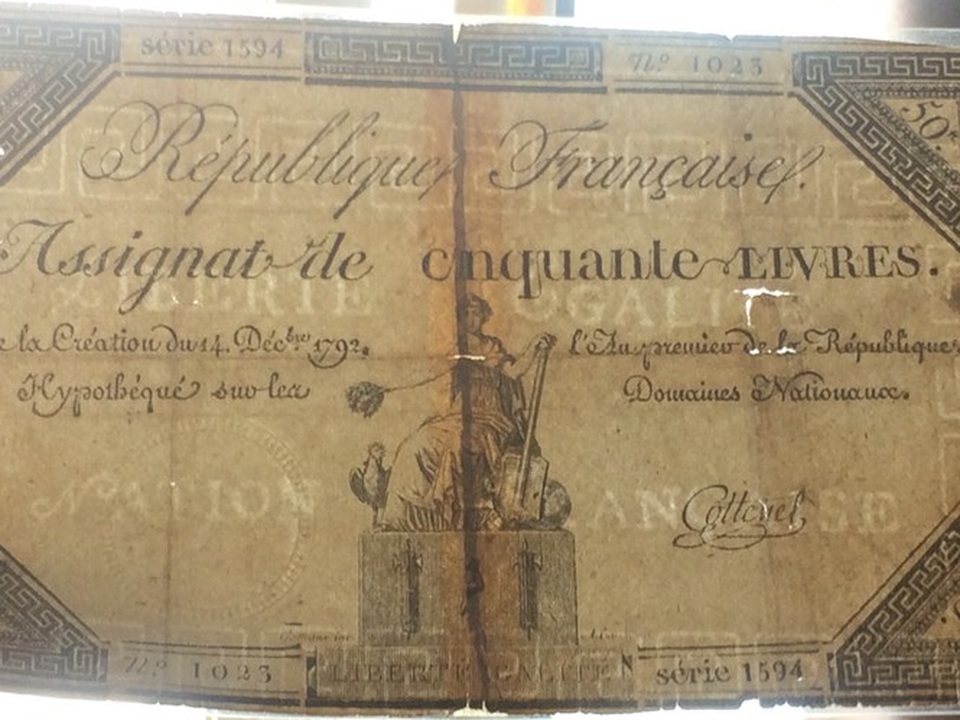 série 1594
Nº 1023
50
République Française.
Assignat de cinquante LIVRES.
LIBERTE EGALITE
de la Création du 14. Décbre 1792.
l'An premier de la République.
Hypothéqué sur les
Domaines Nationaux.
NATION FRANÇAISE
Nº 1023
LIBERTE EGALITE
série 1594